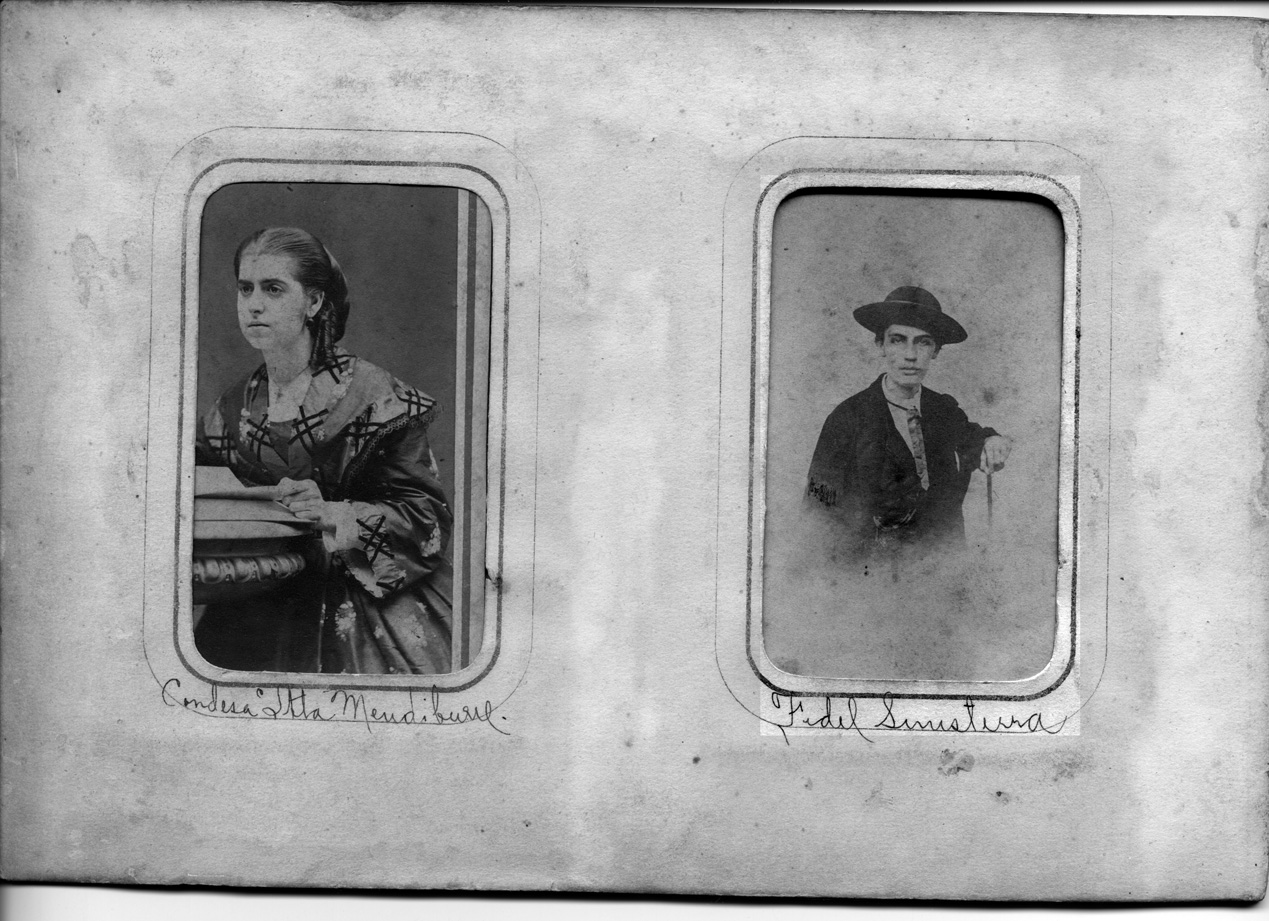 Condesa Itta Mendiburu.
Fidel Sinisterra